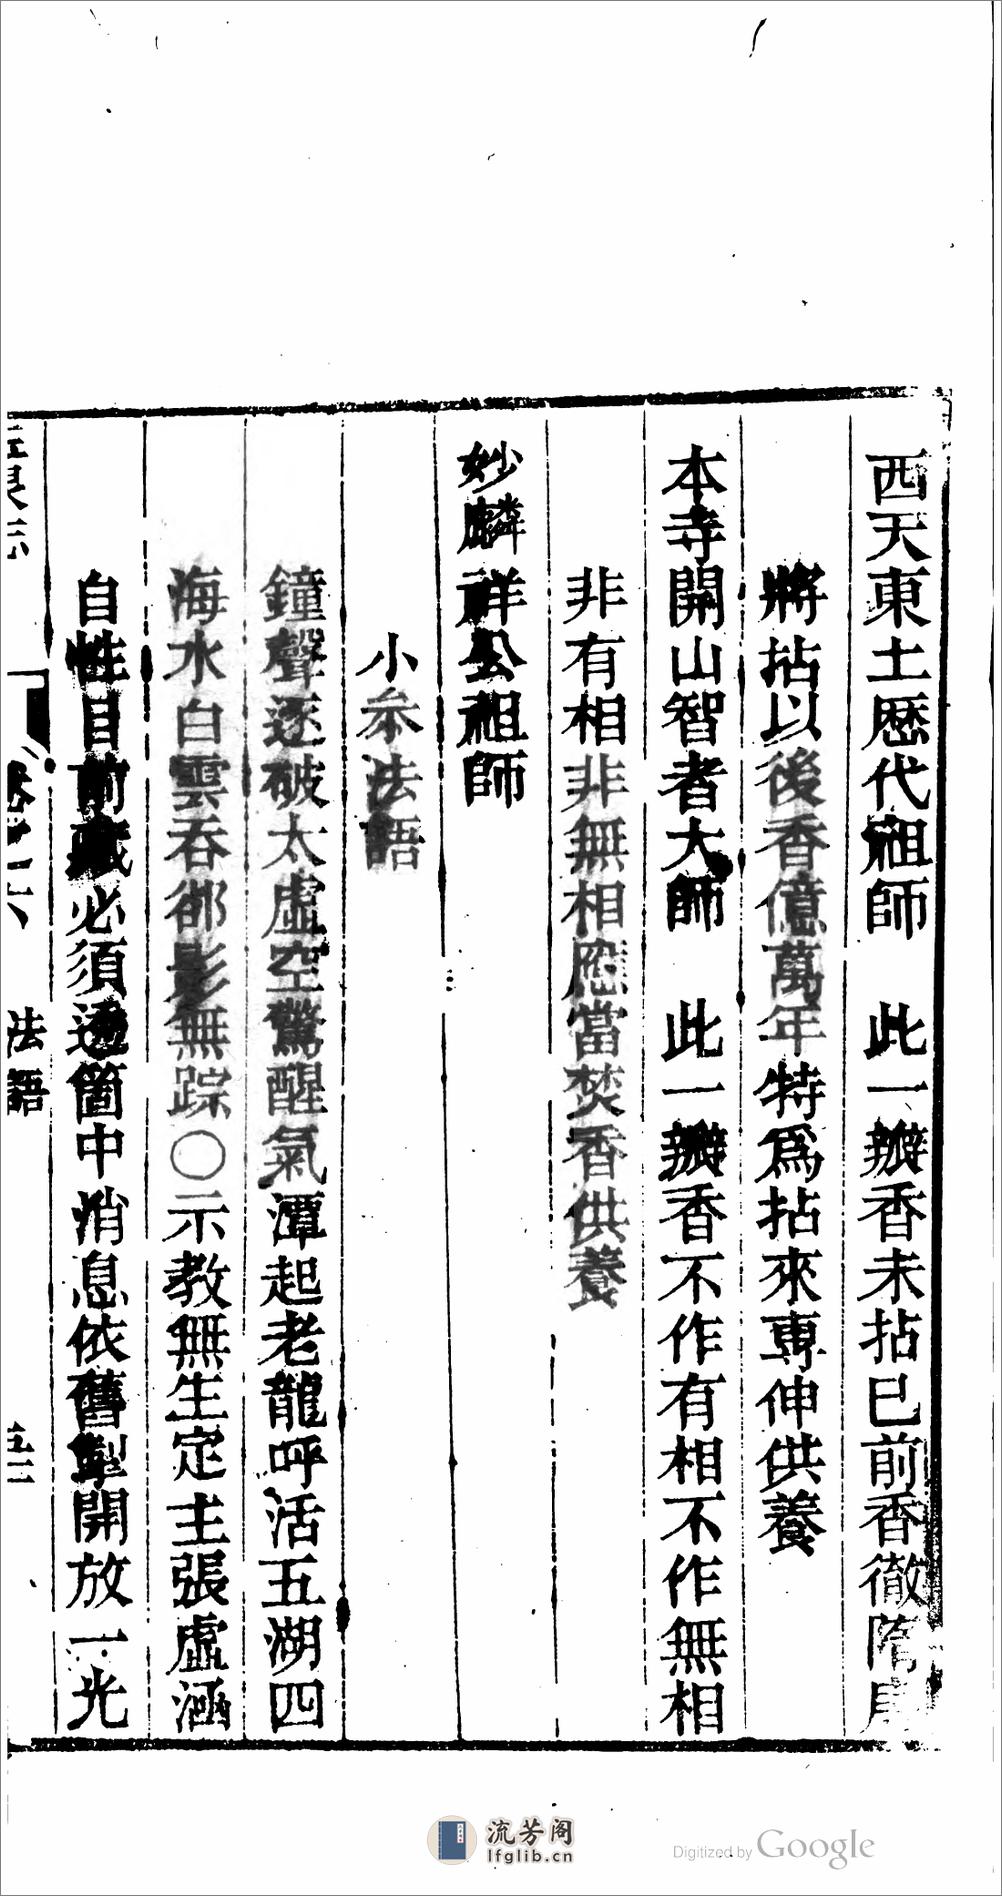 西天東土歷代祖師　此一瓣香未拈巳前香徹隋唐
將拈以後香億萬年特爲拈來專伸供養
本寺開山智者大師　此一瓣香不作有相不作無相
非有相非無相應當焚香供養
妙麟祥公祖師
小叅法語
鐘聲逐破太虛空驚醒氣潭起老龍呼活五湖四
海水白雲吞卻影無踪〇示教無生定主張虛涵
自性目前藏必須透箇中消息依舊掣開放一光
玉泉志　卷之六　法語　五
流芳阁
lfglib.cn
Digitized by Google